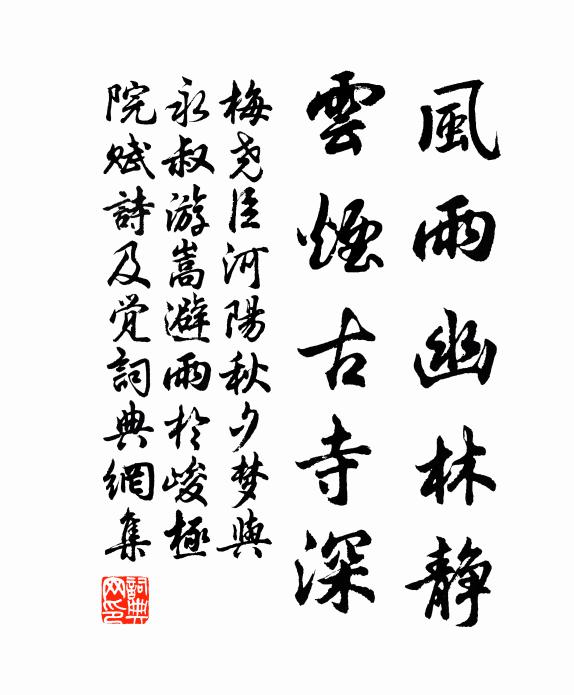 風雨幽林静
雲煙古寺深
梅尧臣河陽秋夕梦與
永叔游嵩避雨於峻極
院赋詩及觉詞典網集
詞典